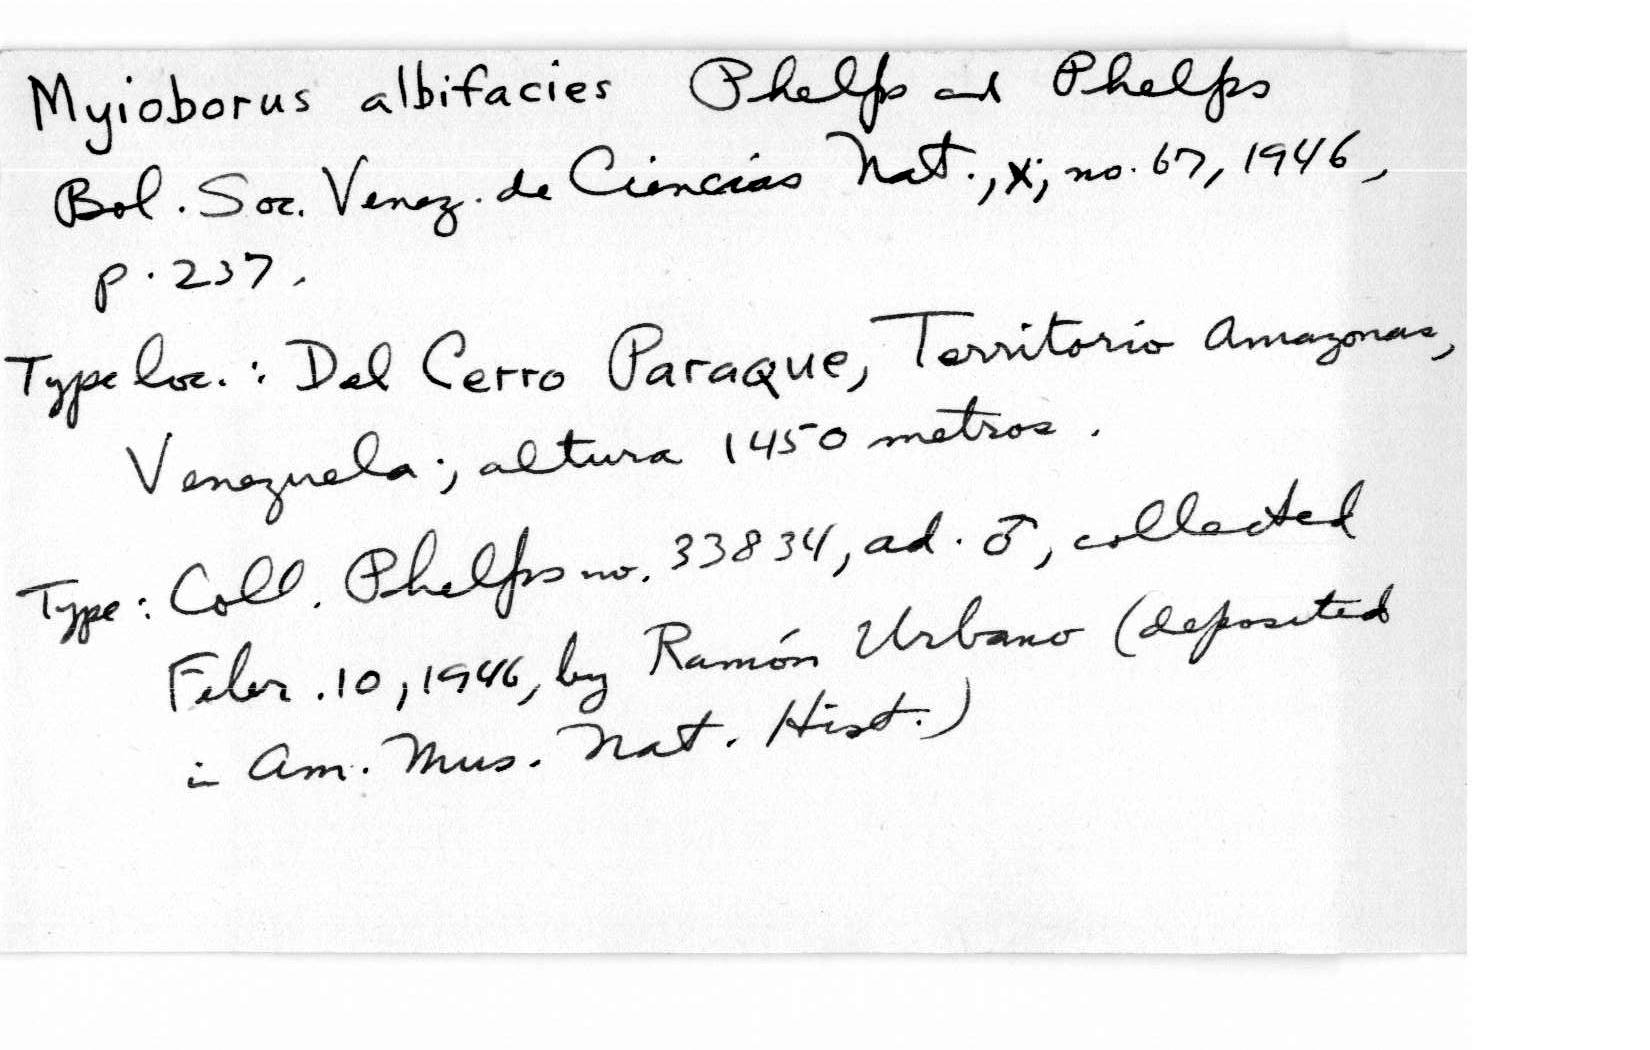 Myioborus albifacies Phelps and Phelps
Bol. Soc. Venez. de Ciencias Nat., X, no. 67, 1946,
p. 237.
Type loc.: Del Cerro Paraque, Territorio Amazonas,
Venezuela; altura 1450 metros.
Type: Coll. Phelps no. 33834, ad. ♂, collected
Febr. 10, 1946, by Ramón Urbano (deposited
in Am. Mus. Nat. Hist.)